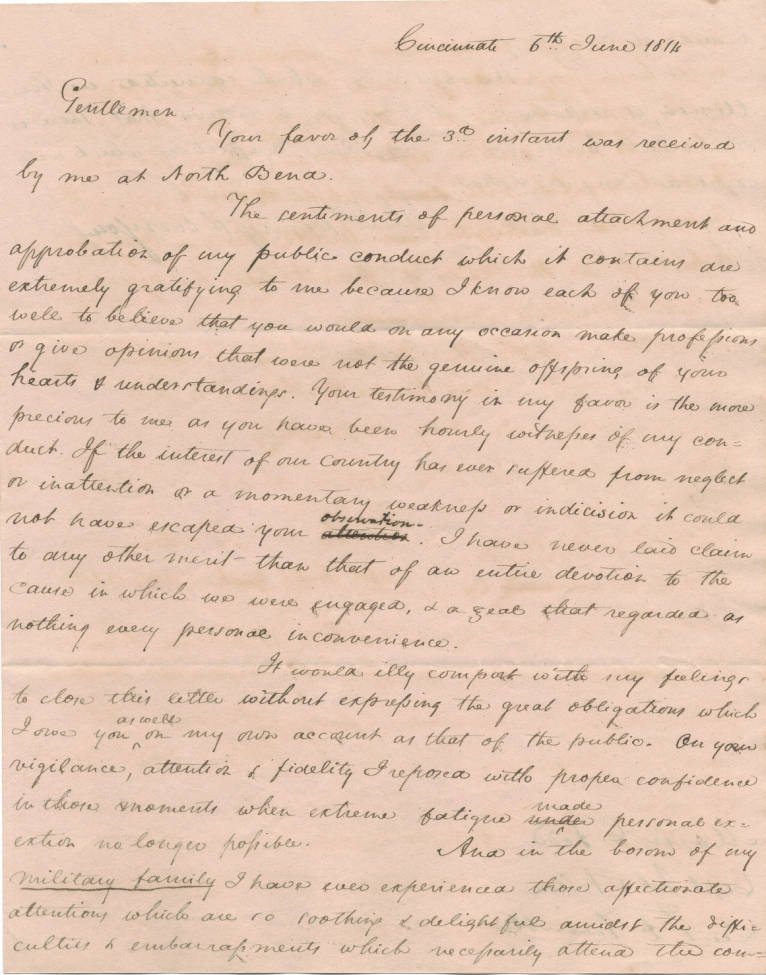 Cincinnate 6th June 1814
Gentlemen
Your favor of the 3d instant was received
by me at North Bend.
The sentiments of personal attachment and
approbation of my public conduct which it contains are
extremely gratifying to me because I know each of you too
well to believe that you would on any occasion make professions
or give opinions that were not the genuine offspring of your
hearts & understandings. Your testimony in my favor is the more
precious to me as you have been hourly witnesses of my con=
duct. If the interest of our Country has ever suffered from neglect
or inattention or a momentary weakness or indicision it could
observation
not have escaped your attention. I have never laid claim
to any other merit than that of an entire devotion to the
cause in which we were engaged, & a zeal that regarded as
nothing every personal inconvenience.
It would illy comport with my feelings
to close this letter without expressing the great obligations which
as well
I owe you on my own account as that of the public. On your
vigilance, attention & fidelity I reposed with proper confidence
made
in those moments when extreme fatigue under personal ex=
ertion no longer possible. And in the bosom of my
military family I have ever experienced those affectionate
attentions which are so soothing & delightful amidst the diffi=
culties & embarrassments which necessarily attend the com=